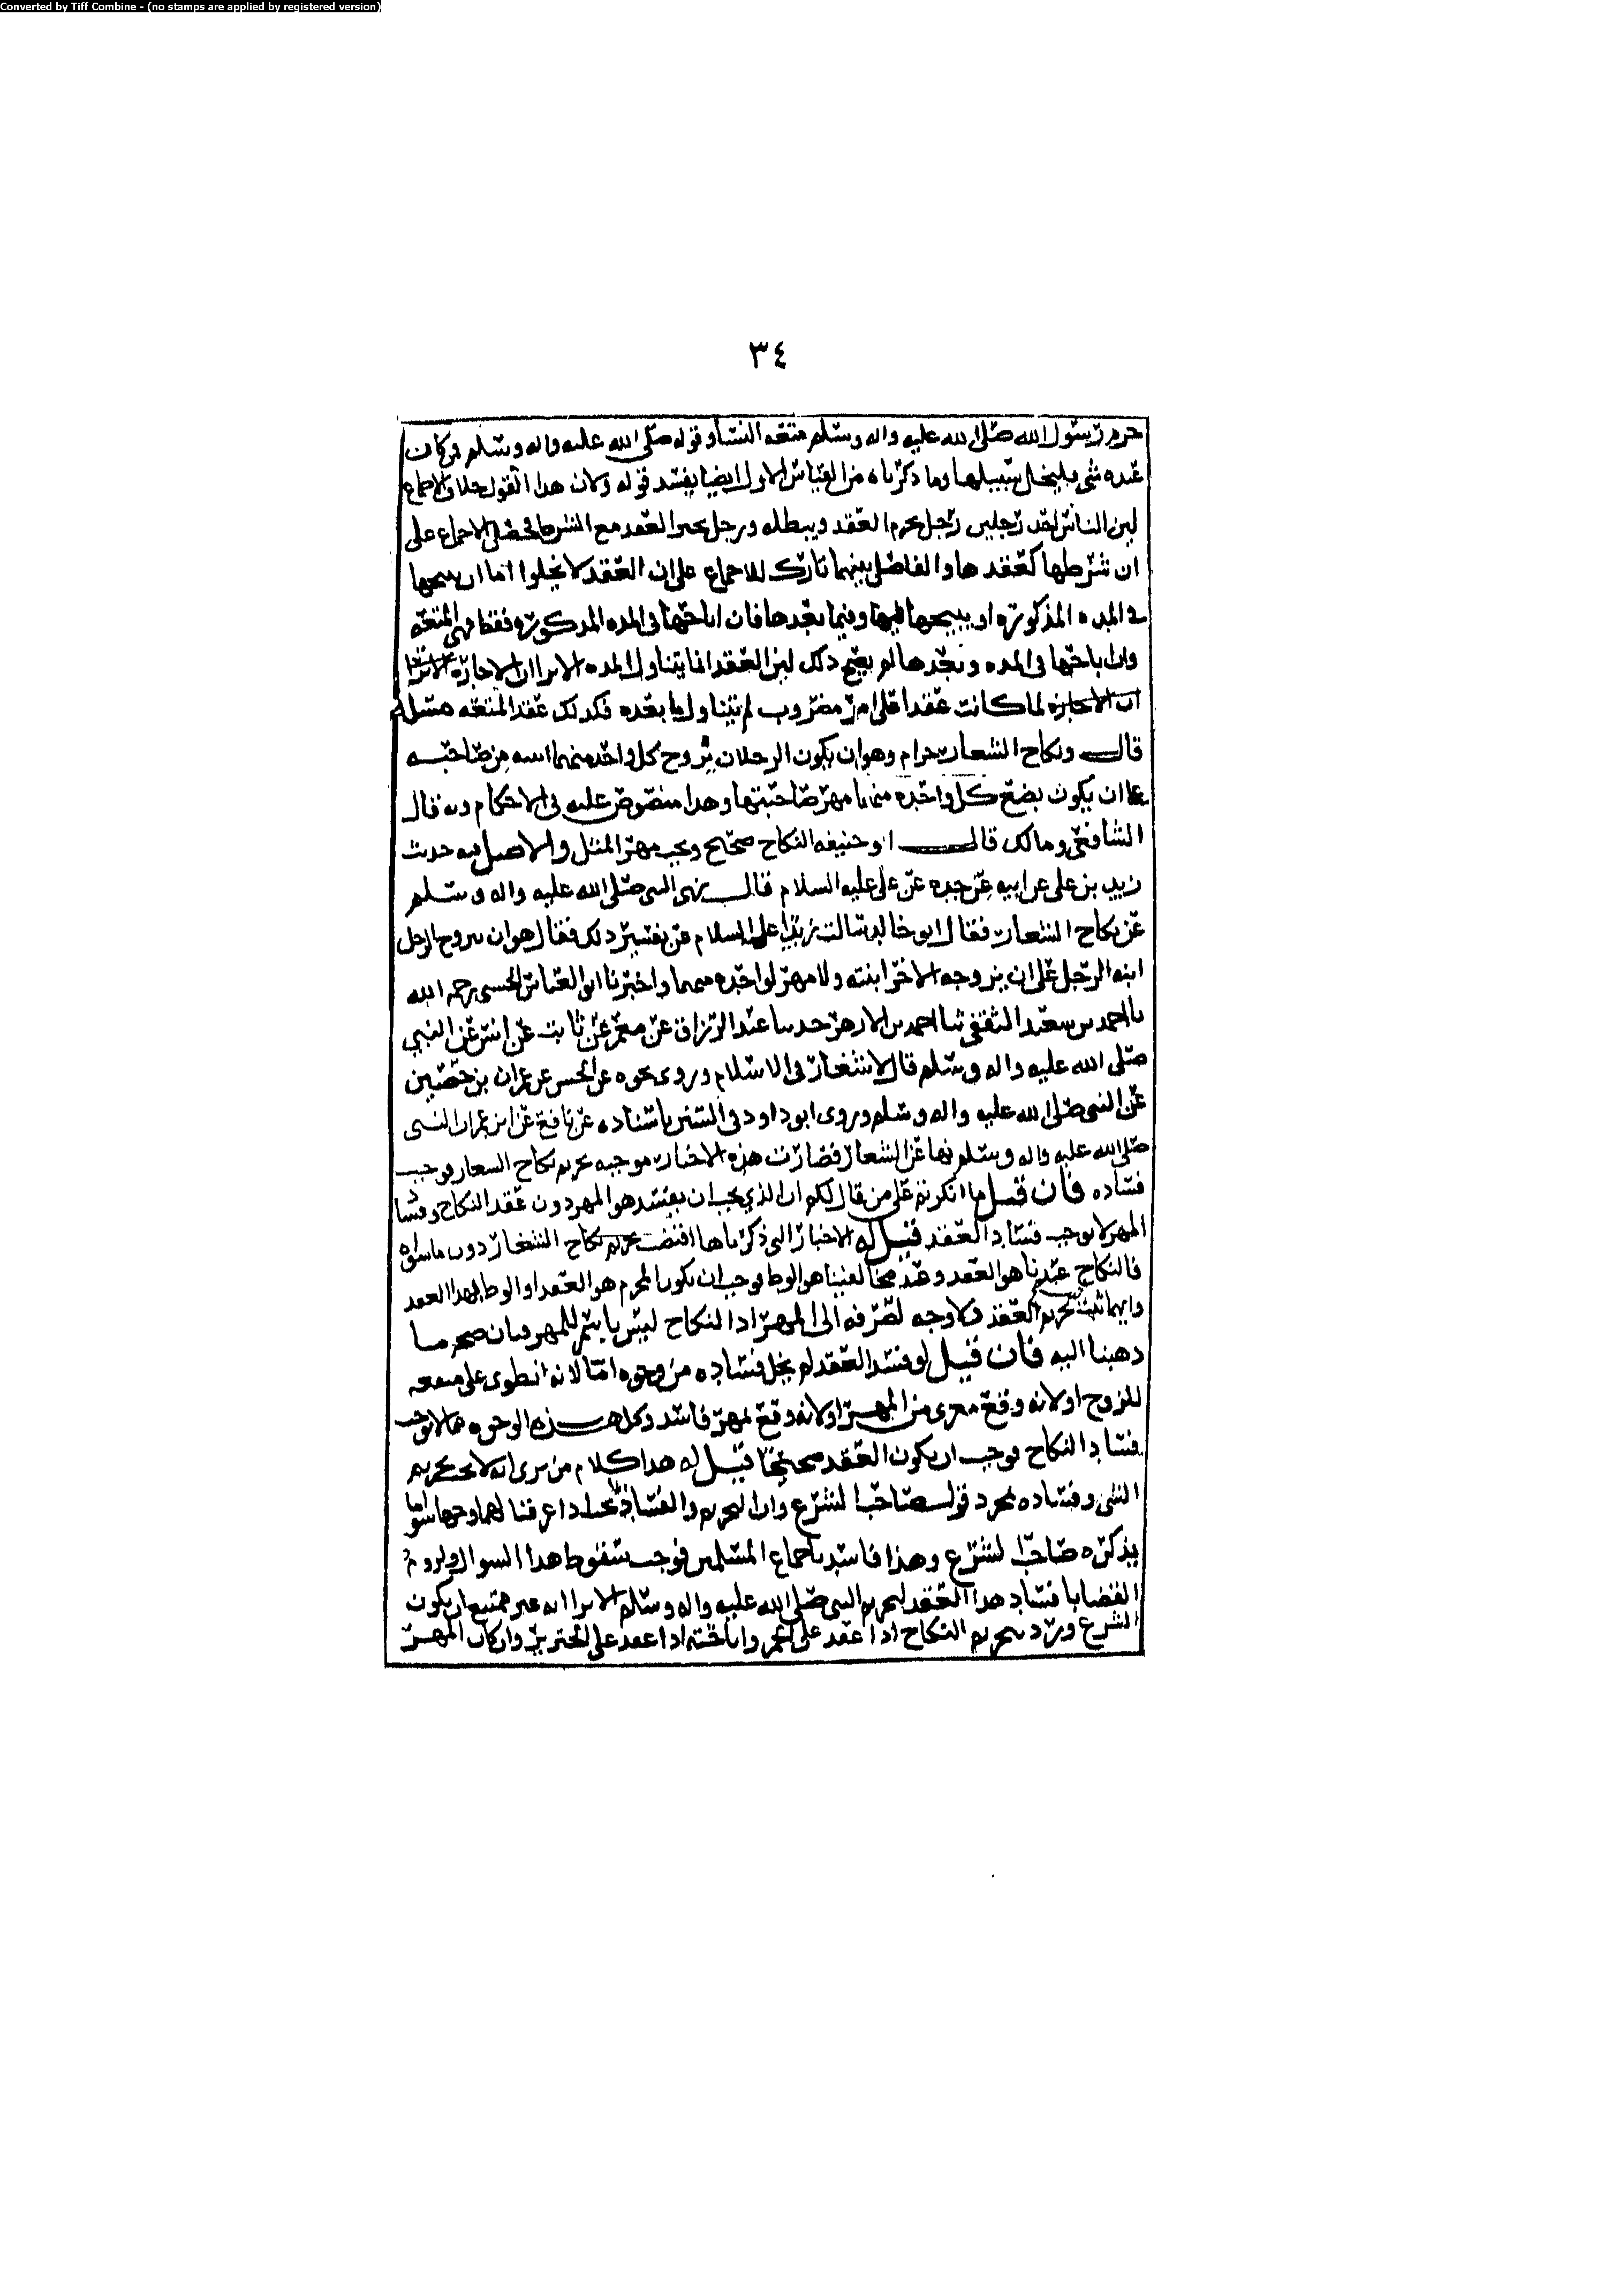 Converted by Tiff Combine - (no stamps are applied by registered version)
٣٤
حرم رسول الله صلى الله عليه واله وسلم متعه النسا وقوله صلى الله عليه واله وسلم من كان
عنده شى فليخل سبيلها وما ذكرناه من القياس الاول ايضا يفسد قوله ولان هذا القول خلاف الاجماع
لان الناس احد رجلين رجل يحرم العقد ويبطله ورجل يجيز العقد مع الشرط فحصل الاجماع على
ان شرطها كعقدها والفاصل بينهما تارك للاجماع على ان العقد لا يخلوا اما ان يبيحها
فى المده المذكوره او يبيحها فيها وفيما بعدها فان اباحها فى المده المذكوره فقط فهى المتعه
وان اباحها فى المده وبعدها لم يصح ذلك لان العقد انما يتناول المده الا ترا ان الاجاره
ان الاجازه لما كانت عقدا على امر مضروب لم تتناول ما بعده فكذلك عقد المتعه مسله
قال ونكاح الشغار حرام وهو ان يكون الرجلان يزوج كل واحد منهما ابنته من صاحبه
على ان يكون بضع كل واحده منهما مهر صاحبتها وهذا منصوص عليه فى الاحكام وبه قال
الشافعى ومالك قال ابو حنيفه النكاح صحيح ويجب مهر المثل والاصل فيه حديث
زيد بن على عن ابيه عن جده عن على عليه السلام قال نهى النبى صلى الله عليه واله وسلم
عن نكاح الشغار فقال ابو خالد سالت زيدا عليه السلام عن تفسير ذلك فقال هو ان يتزوج الرجل
ابنه الرجل على ان يزوجه الاخر ابنته ولا مهر لواحده منهما واخبرنا ابو العباس الحسنى رحمه الله
نا احمد بن سعيد الثقفى ثنا احمد بن الازهر حدثنا عبد الرزاق عن معمر عن ثابت عن انس عن النبي
صلى الله عليه واله وسلم قال لا شغار فى الاسلام وروى نحوه عن الحسن عن عمران بن حصين
عن النبى صلى الله عليه واله وسلم وروى ابو داود فى السنن باسناده عن نافع عن ابن عمر ان النبى
صلى الله عليه واله وسلم نها عن الشغار فصارت هذه الاخبار موجبه تحريم نكاح الشغار فوجب
فساده فان قيل ما انكرتم على من قال لكم ان الذي يجب ان يفسد هو المهر دون عقد النكاح وفساد
المهر لا يوجب فساد العقد قيل له الاخبار التى ذكرناها اقتضت تحريم نكاح الشغار دون ماسواه
فالنكاح عندنا هو العقد وعند مخالفينا هو الوطا فوجب ان يكون المحرم هو العقد او الوطا بهذا العقد
وايهما ثبت تحريم العقد فلا وجه لصرفه الى المهر اذا النكاح ليس باسم للمهر فبان صحه ما
ذهبنا اليه فان قيل لو فسد العقد لم يخل فساده من وجوه اما لانه انطوى على منفعه
للزوج او لانه وقع معرى من المهر او لانه وقع لمهر فاسد وكل هذه الوجوه مما لا يوجب
فساد النكاح فوجب ان يكون العقد صحيحا قيل له هذا كلام من يرى انه لا يجب تحريم
الشى وفساده بمجرد قول صاحب الشرع وان التحريم والفساد يجب اذا عرفنا لهما وجها سوا ما
يذكره صاحب الشرع وهذا فاسد باجماع المسلمين فوجب سقوط هذا السوال ولزوم
القضا بافساد هذا العقد لتحريم النبى صلى الله عليه واله وسلم الا ترا انه غير ممتنع ان يكون
الشرع ورد بتحريم النكاح اذا عقد على الخمر واباحته اذا عقد على الخنزير وان كان المهر